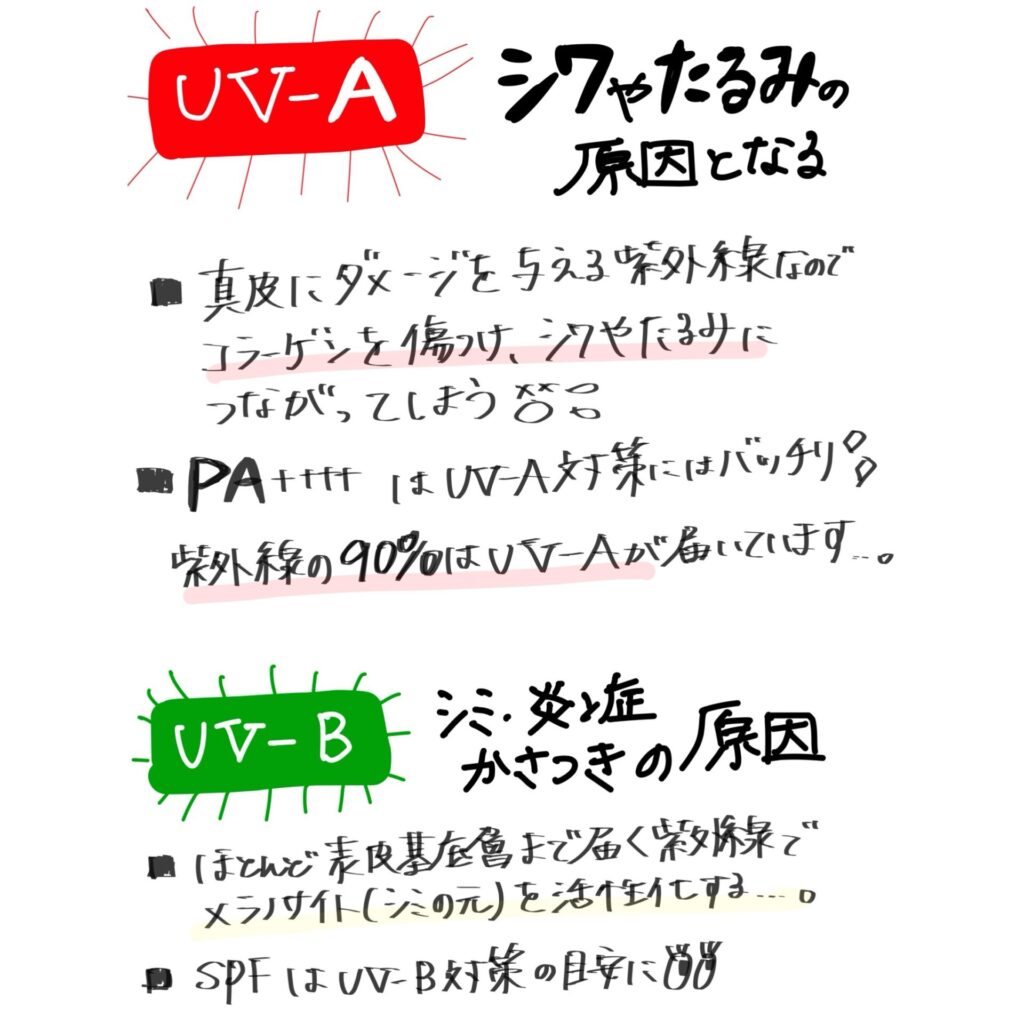 UV-A
シワやたるみの
原因となる
■ 真皮にダメージを与える紫外線なので
コラーゲンを傷つけ、シワやたるみに
つながってしまう
■ PA++++ はUV-A対策にはバッチリ
紫外線の90%はUV-Aが届いています…。
UV-B
シミ・炎症
かさつきの原因
■ ほとんど表皮基底層まで届く紫外線で
メラノサイト(シミの元)を活性化する…。
■ SPFはUV-B対策の目安に